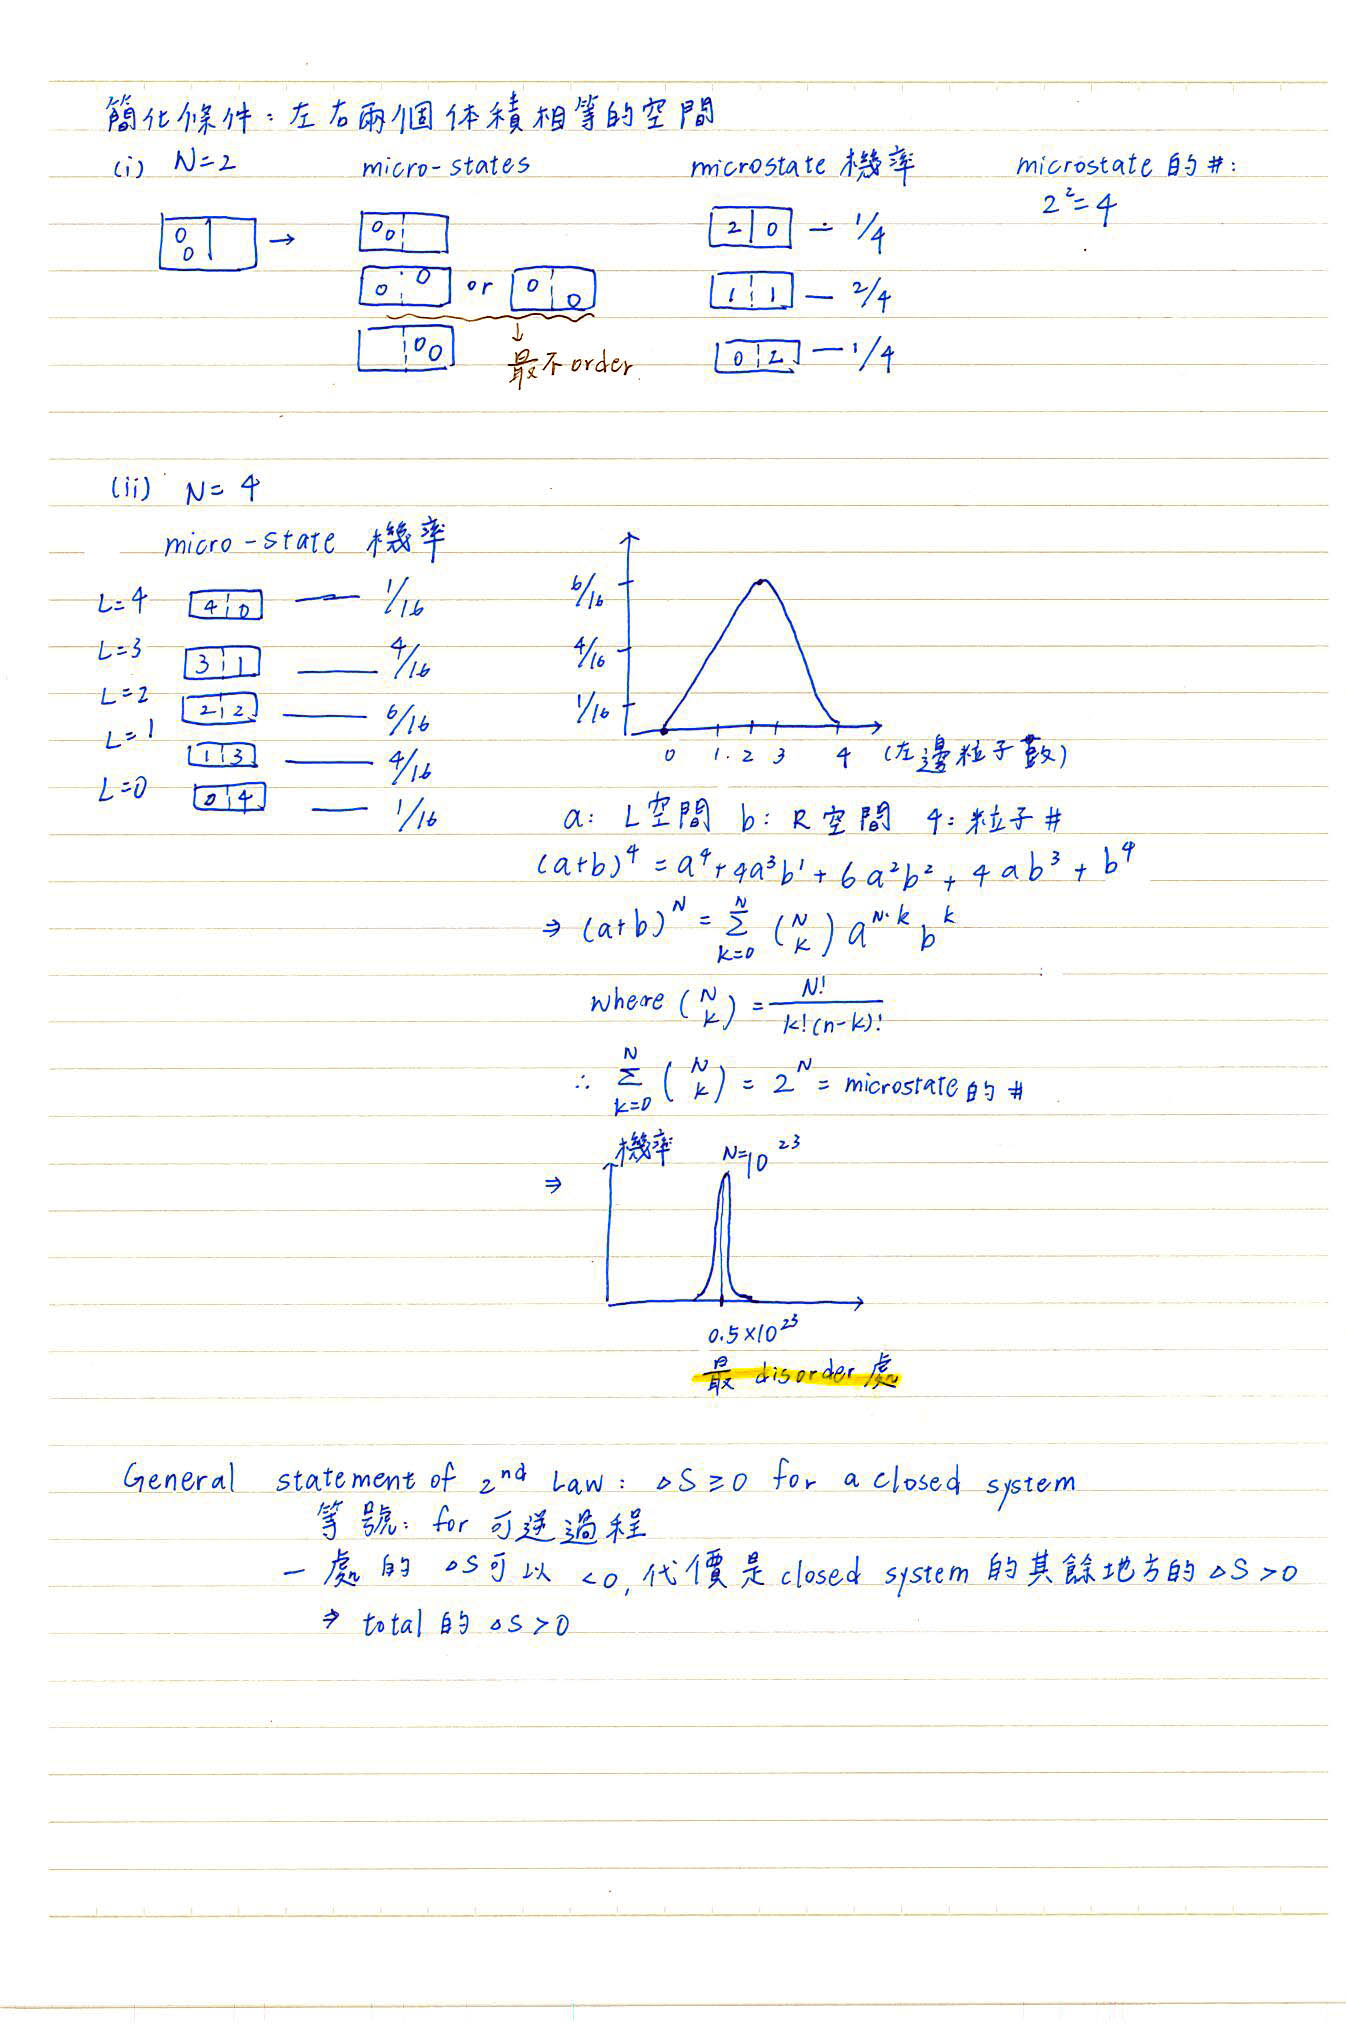 簡化條件：左右兩個体積相等的空間
(i) N=2 micro-states microstate 機率 microstate 的 #:
2²=4
2 0 — 1/4
or
1 1 — 2/4
最不 order
0 2 — 1/4
(ii) N=4
micro-state 機率
L=4 4 0 — 1/16
L=3 3 1 — 4/16
L=2 2 2 — 6/16
L=1 1 3 — 4/16
L=0 0 4 — 1/16
6/16
4/16
1/16
0 1 2 3 4 (左邊粒子數)
a: L空間 b: R空間 4: 粒子#
(a+b)⁴ = a⁴+4a³b¹+6a²b²+4ab³+b⁴
⇒ (a+b)^N = Σ_{k=0}^{N} (N k) a^{N-k} b^k
where (N k) = N!/k!(n-k)!
∴ Σ_{k=0}^{N} (N k) = 2^N = microstate 的 #
機率 N=10²³
⇒
0.5×10²³
最 disorder 處
General statement of 2nd Law: △S≥0 for a closed system
等號: for 可逆過程
一處的 △S可以 <0, 代價是 closed system 的其餘地方的 △S>0
⇒ total 的 △S>0